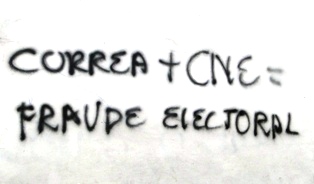 CORREA + CNE =
FRAUDE ELECTORAL